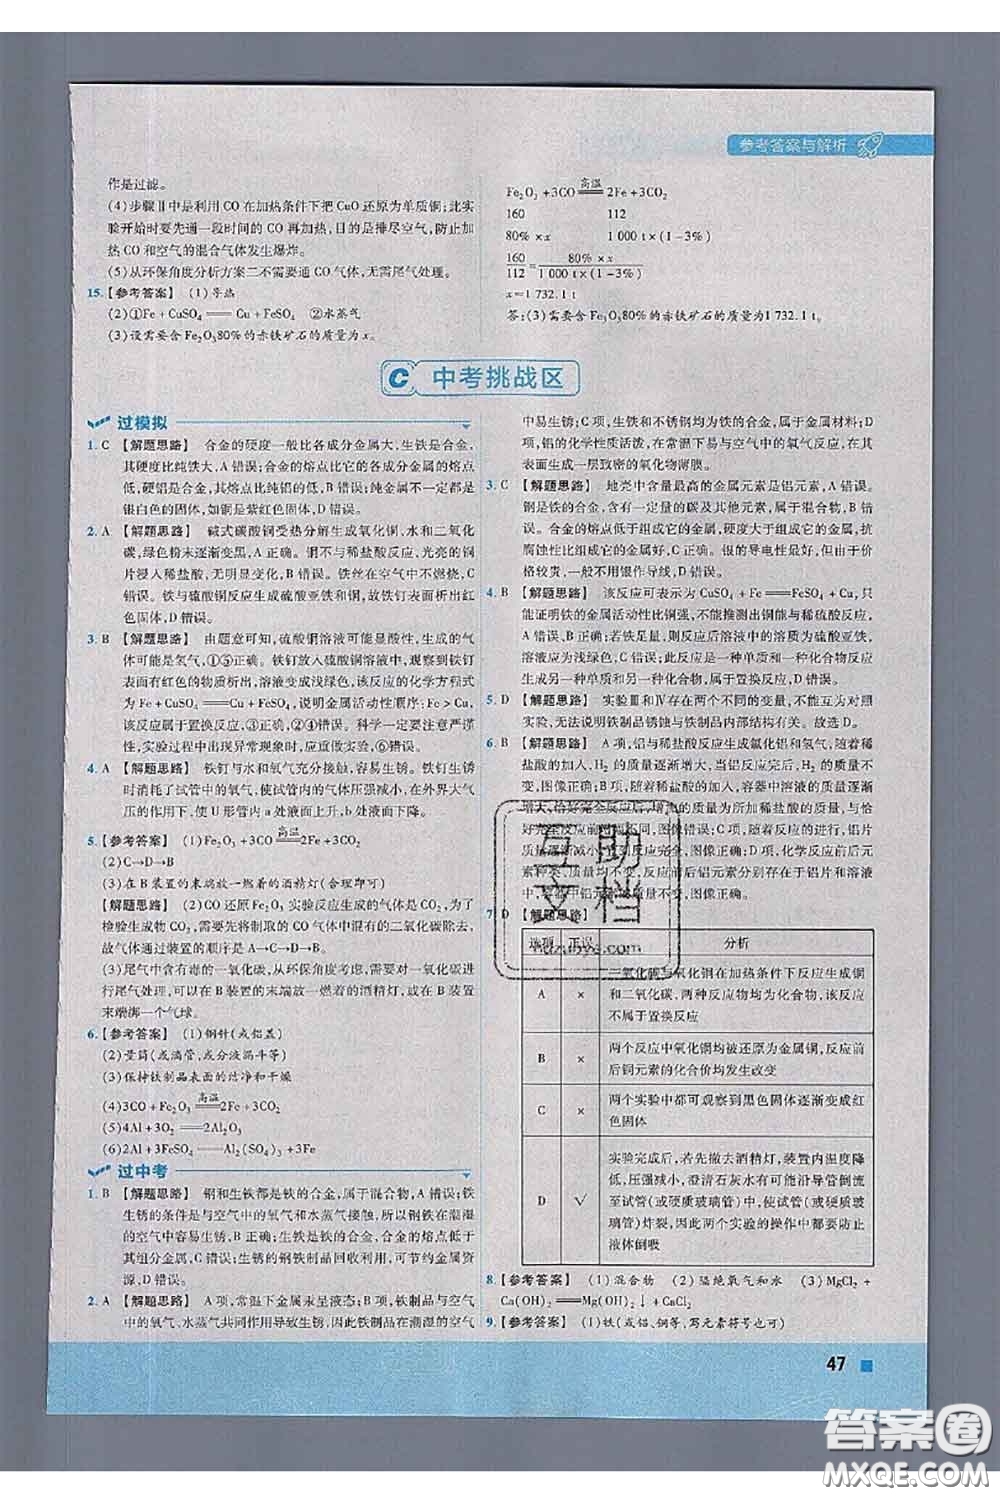 参考答案与解析
作是过滤。
(4)步骤Ⅱ中是利用CO在加热条件下把CuO还原为单质铜;此实
验开始时要先通一段时间的CO再加热,目的是排尽空气,防止加
热CO和空气的混合气体发生爆炸。
(5)从环保角度分析方案二不需要通CO气体,无需尾气处理。
15.【参考答案】 (1)导热
(2)①Fe+CuSO₄══Cu+FeSO₄ ②水蒸气
(3)设需要含Fe₂O₃80%的赤铁矿石的质量为x
Fe₂O₃+3CO══高温2Fe+3CO₂
160 112
80%×x 1 000 t×(1-3%)
160/112=80%×x/1 000 t×(1-3%)
x=1 732.1 t
答:(3)需要含Fe₂O₃80%的赤铁矿石的质量为1 732.1 t。
C 中考挑战区
过模拟
1. C 【解题思路】 合金的硬度一般比各成分金属大,生铁是合金,
其硬度比纯铁大,A错误;合金的熔点比它的各成分金属的熔点
低,硬铝是合金,其熔点比纯铝的低,B错误;纯金属不一定都是
银白色的固体,如铜是紫红色固体,D错误。
2. A 【解题思路】 碱式碳酸铜受热分解生成氧化铜,水和二氧化
碳,绿色粉末逐渐变黑,A正确。铜不与稀盐酸反应,光亮的铜
片浸入稀盐酸,无明显变化,B错误。铁丝在空气中不燃烧,C错
误。铁与硫酸铜反应生成硫酸亚铁和铜,故铁钉表面生成红
色固体,D错误。
3. B 【解题思路】 由题意可知,硫酸铜溶液可能显酸性,生成的气
体可能是氢气,①⑤正确。铁钉放入硫酸铜溶液中,观察到铁钉
表面有红色的物质析出,溶液变成浅绿色,该反应的化学方程式
为Fe+CuSO₄══Cu+FeSO₄,说明金属活动性顺序:Fe>Cu,
该反应属于置换反应,③正确,②④错误。科学一定要注意严谨
性,实验过程中出现异常现象时,应重新实验,⑥错误。
4. A 【解题思路】 铁钉与水和氧气充分接触,容易生锈。铁钉生锈
时消耗了试管中的氧气,使试管内的气体压强减小,在外界大气
压的作用下,使U形管内a处液面上升,b处液面下降。
5.【参考答案】 (1)Fe₂O₃+3CO══高温2Fe+3CO₂
(2)C→D→B
(3)在B装置的末端放一燃着的酒精灯(合理即可)
【解题思路】 (2)CO还原Fe₂O₃实验反应生成的气体是CO₂,为了
检验生成物CO₂,需要先将制成的CO气体中混有的二氧化碳除去,
故气体通过装置的顺序是A→C→D→B。
(3)尾气中含有毒的一氧化碳,从环保角度考虑,需要对一氧化碳
进行尾气处理,可以在B装置的末端放一燃着的酒精灯,或在B装置
末端绑一个气球。
6.【参考答案】 (1)钢针(或铝盖)
(2)量筒(或滴管,或分液漏斗等)
(3)保持铁制品表面的洁净和干燥
(4)3CO+Fe₂O₃══高温2Fe+3CO₂
(5)4Al+3O₂══2Al₂O₃
(6)2Al+3FeSO₄══Al₂(SO₄)₃+3Fe
过中考
1. B 【解题思路】 钢和生铁都是铁的合金,属于混合物,A错误;铁
生锈的条件是与空气中的氧气和水蒸气接触,所以钢铁在潮湿
的空气中容易生锈,B正确;生铁是铁的合金,合金的熔点低于
其组分金属,C错误;生锈的钢铁制品回收利用,可节约金属资
源,D错误。
2. A 【解题思路】 A项,常温下金属汞呈液态;B项,铁制品与空气
中的氧气、水蒸气共同作用导致生锈,因此铁制品在潮湿的空气
中易生锈;C项,生铁和不锈钢均为铁的合金,属于金属材料;D
项,铝的化学性质活泼,在常温下易与空气中的氧气反应,在其
表面生成一层致密的氧化物薄膜。
3. C 【解题思路】 地壳中含量最高的金属元素是铝元素,A错误。
钢是铁的合金,含有一定量的碳及其他元素,属于混合物,B错
误。合金的熔点低于组成它的金属,硬度大于组成它的金属,抗
腐蚀性比组成它的金属好,C正确。银的导电性最好,但由于价
格较贵,一般不用银作导线,D错误。
4. B 【解题思路】 该反应可表示为CuSO₄+Fe══FeSO₄+Cu,只
能证明铁的金属活动性比铜强,不能推测出铜能与稀硫酸反应,
A错误,B正确;若铁足量,则反应后溶液中的溶质为硫酸亚铁,
溶液应为浅绿色,C错误;此反应是一种单质和一种化合物反应
生成另一种单质和另一种化合物,属于置换反应,D错误。
5. D 【解题思路】 实验Ⅲ和Ⅳ存在两个不同的变量,不能互为对照
实验,无法说明铁制品锈蚀与铁制品内部结构有关。故选D。
6. B 【解题思路】 A项,铝与稀盐酸反应生成氯化铝和氢气,随着稀
盐酸的加入,H₂的质量逐渐增大,当铝反应完后,H₂的质量不再
增大,图像正确;B项,随着稀盐酸的加入,容器中溶液的质量逐渐
增大,恰好完全反应后,增加的质量为所加稀盐酸的质量,与恰
好完全反应前增幅不同,图像错误;C项,随着反应的进行,铝片
质量逐渐减小,直到反应完,图像正确;D项,化学反应前后元素
种类不变,质量不变,铝元素反应前后存在于铝片和溶液
中,容器中铝元素的质量不变,图像正确。
7. D 【解题思路】
选项 正误 分析
A × 一氧化碳与氧化铜在加热条件下反应生成铜
和二氧化碳,两种反应物均为化合物,该反应
不属于置换反应
B × 两个反应中氧化铜均被还原为金属铜,反应前
后铜元素的化合价均发生改变
C × 两个实验中都可观察到黑色固体逐渐变成红
色固体
D √ 实验完成后,若先撤去酒精灯,装置内温度降
低,压强变小,澄清石灰水有可能沿导管倒流
至试管(或硬质玻璃管)中,使试管(或硬质玻
璃管)炸裂,因此两个实验的操作中都要防止
液体倒吸
8.【参考答案】 (1)混合物 (2)隔绝氧气和水 (3)MgCl₂+
Ca(OH)₂══Mg(OH)₂↓+CaCl₂
9.【参考答案】 (1)铁(或铝、铜等,写元素符号也可)
互助
文档
47
答案圈
MXQE.COM